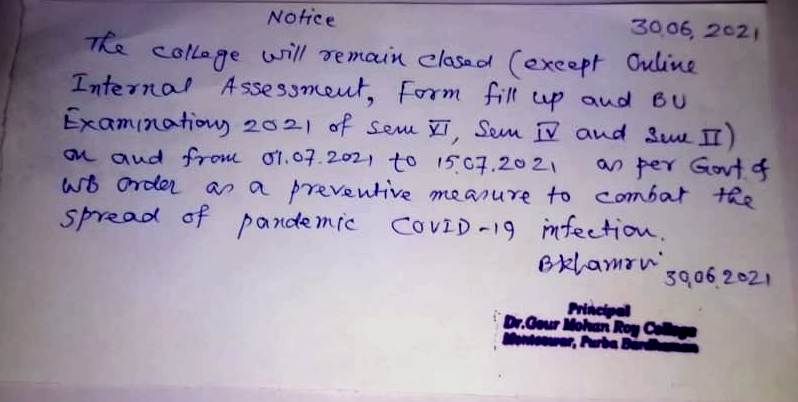 Notice
30.06.2021
The college will remain closed (except Online
Internal Assessment, Form fill up and BU
Examinations 2021 of sem VI, Sem IV and Sem II)
on and from 01.07.2021 to 15.07.2021 as per Govt. of
WB order as a preventive measure to combat the
spread of pandemic COVID-19 infection.
30.06.2021
Principal
Dr.Gour Mohan Roy College
Monteswar, Purba Bardhaman